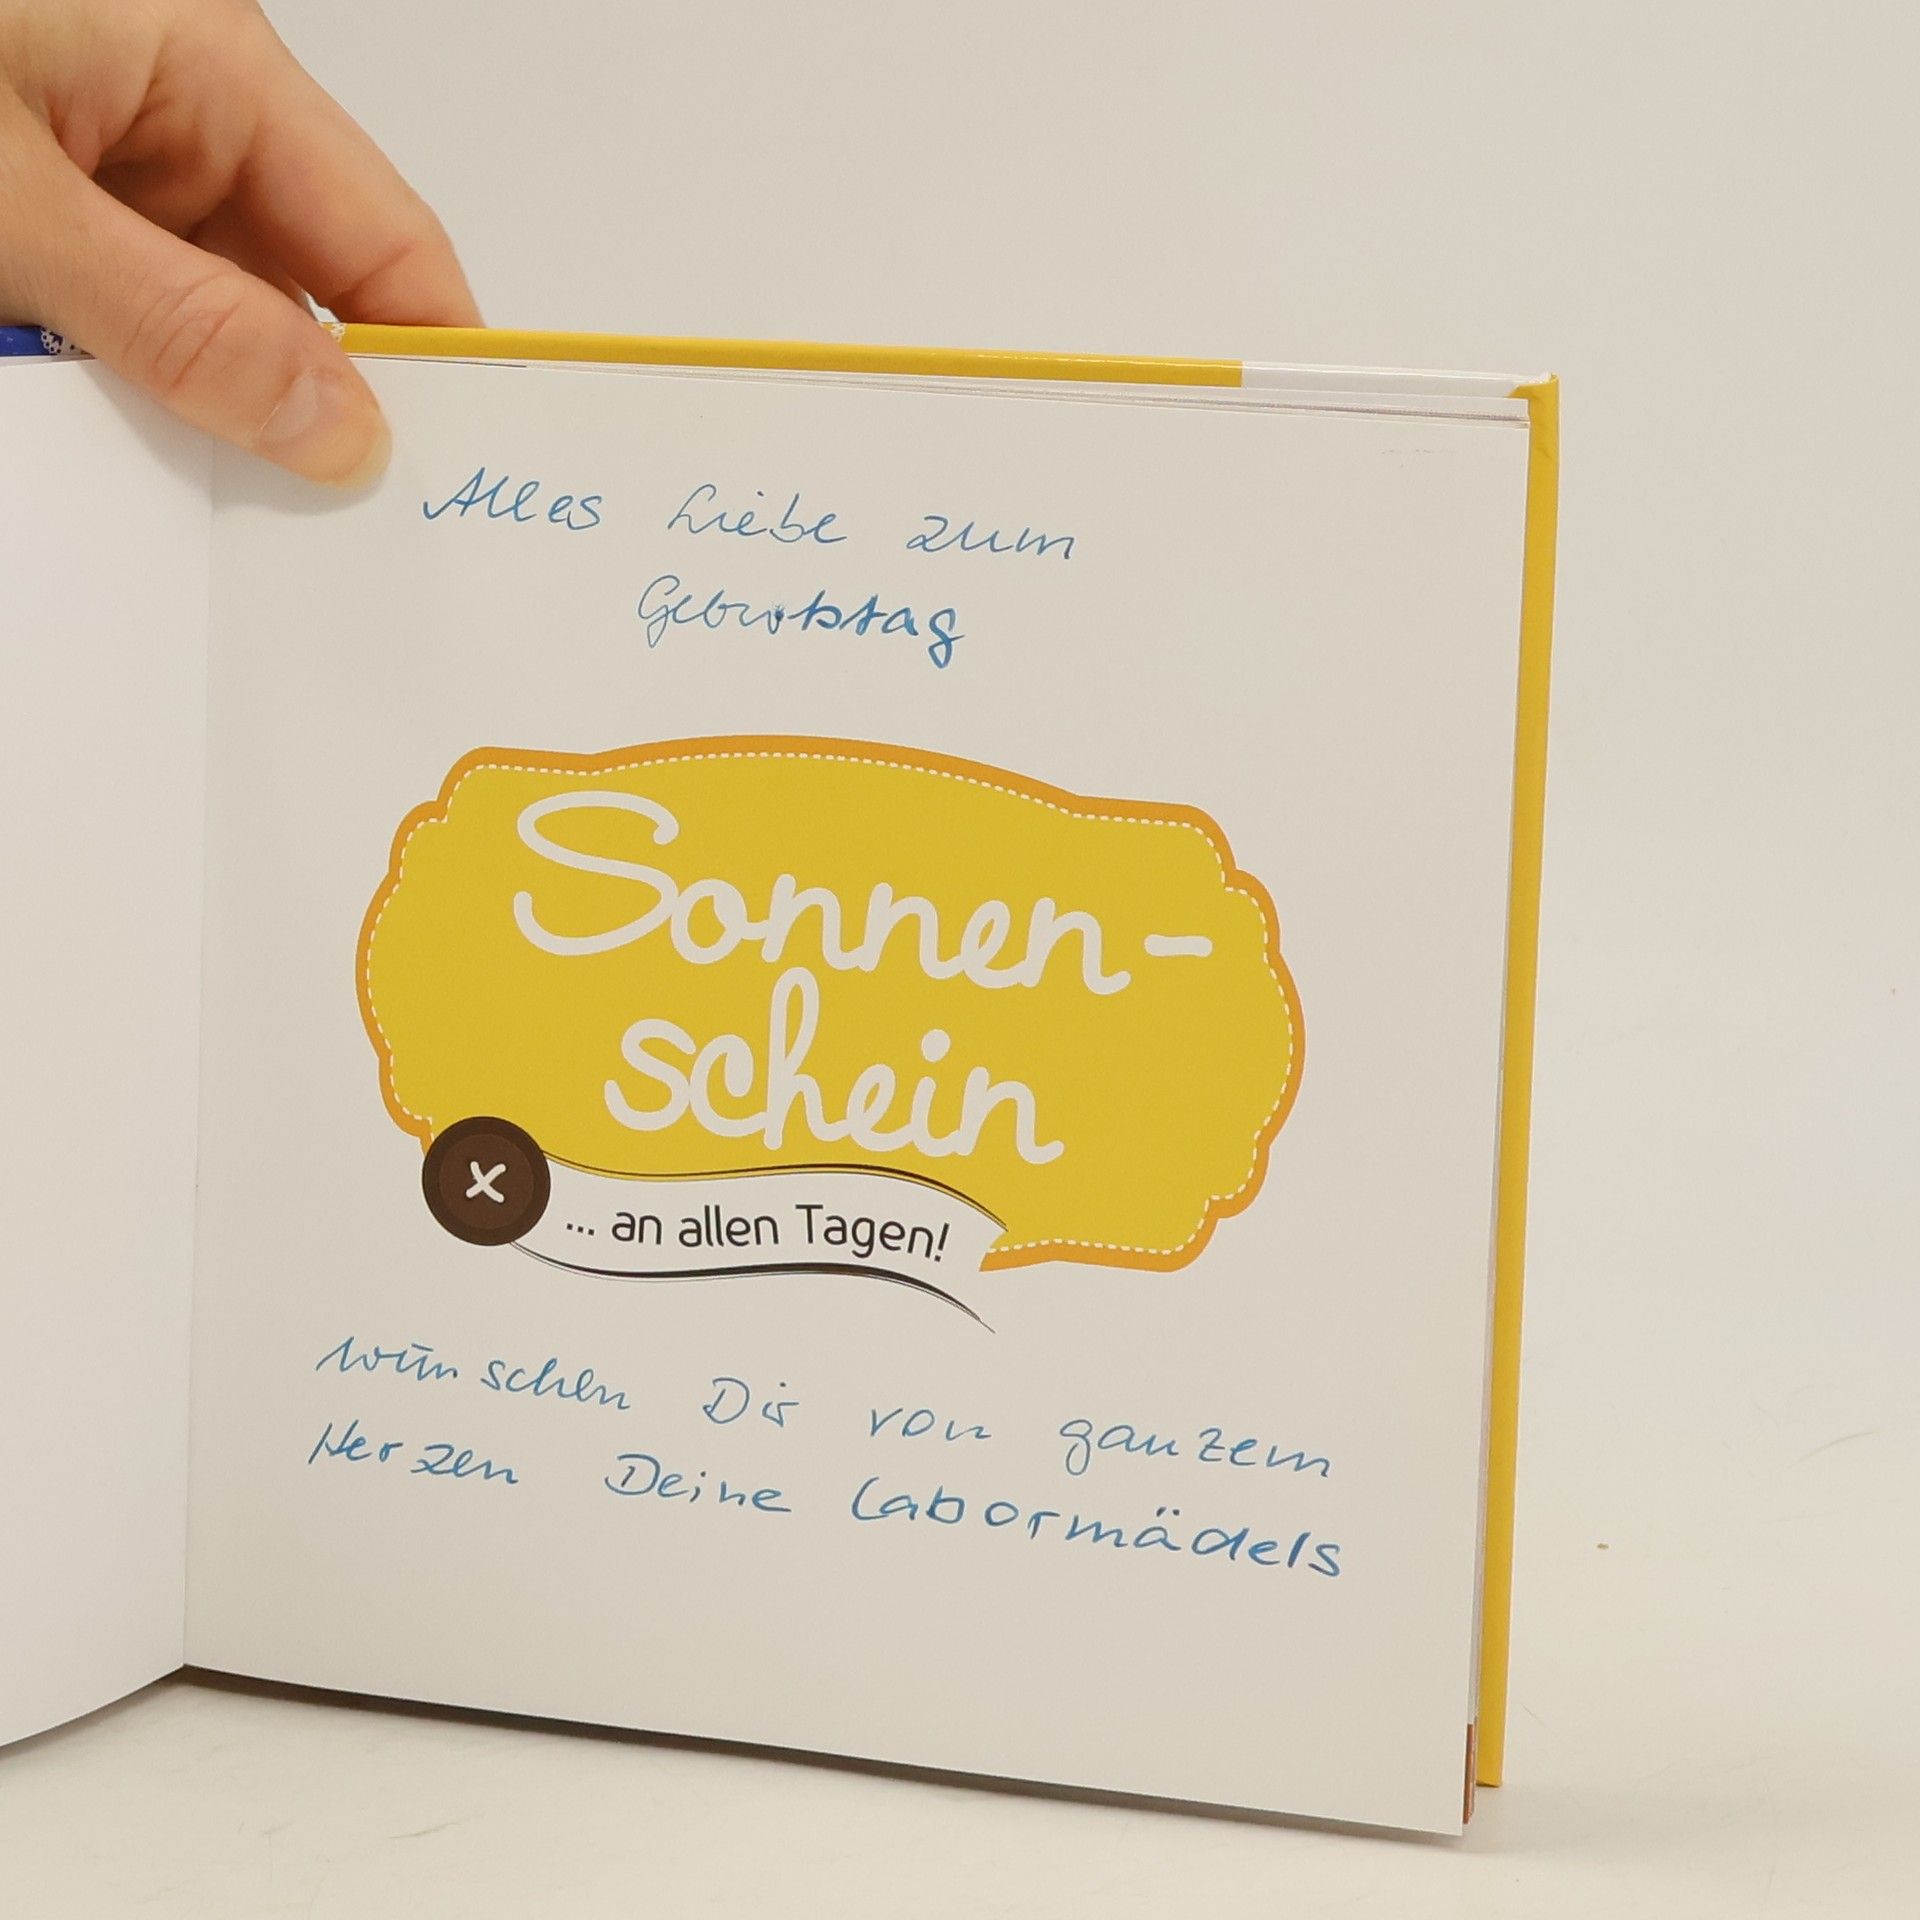 Alles Liebe zum
Geburtstag
Sonnen-
schein
... an allen Tagen!
wünschen Dir von ganzem
Herzen Deine Labormädels